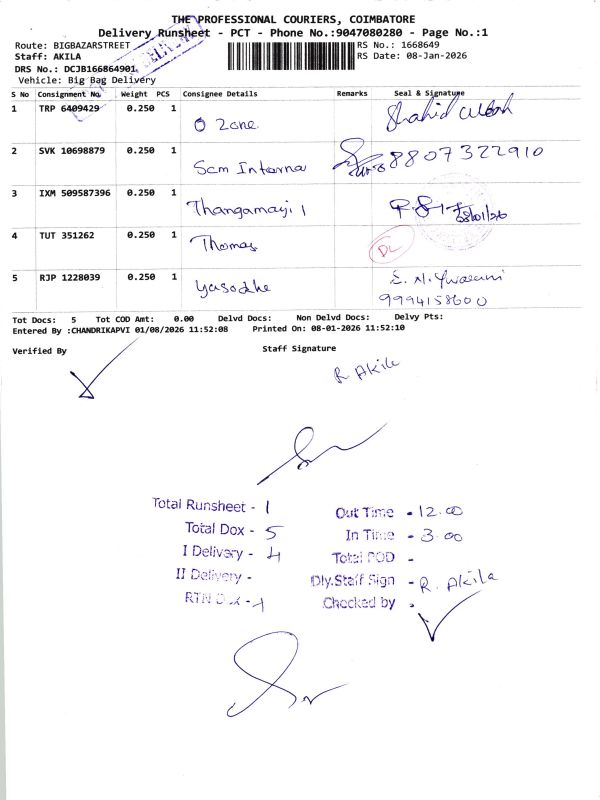 THE PROFESSIONAL COURIERS, COIMBATORE
Delivery Runsheet - PCT - Phone No.:9047080280 - Page No.:1
Route: BIGBAZARSTREET
RS No.: 1668649
Staff: AKILA
RS Date: 08-Jan-2026
DRS No.: DCJB166864901
Vehicle: Big Bag Delivery
S No Consignment No Weight PCS Consignee Details Remarks Seal & Signature
1 TRP 6409429 0.250 1 O Zone Shahid
2 SVK 10698879 0.250 1 Scm Interna 8807322910
3 IXM 509587396 0.250 1 Thangamayi 1 08/01/26
4 TUT 351262 0.250 1 Thomas DL
5 RJP 1228039 0.250 1 Yasodhe
9994158600
Tot Docs: 5 Tot COD Amt: 0.00 Delvd Docs: Non Delvd Docs: Delvy Pts:
Entered By :CHANDRIKAPVI 01/08/2026 11:52:08 Printed On: 08-01-2026 11:52:10
Verified By Staff Signature
R Akila
Total Runsheet - 1
Total Dox - 5
I Delivery - 4
II Delivery -
RTN
Out Time - 12.00
In Time - 3.00
Total POD -
Dly.Staff Sign - R. Akila
Checked by -